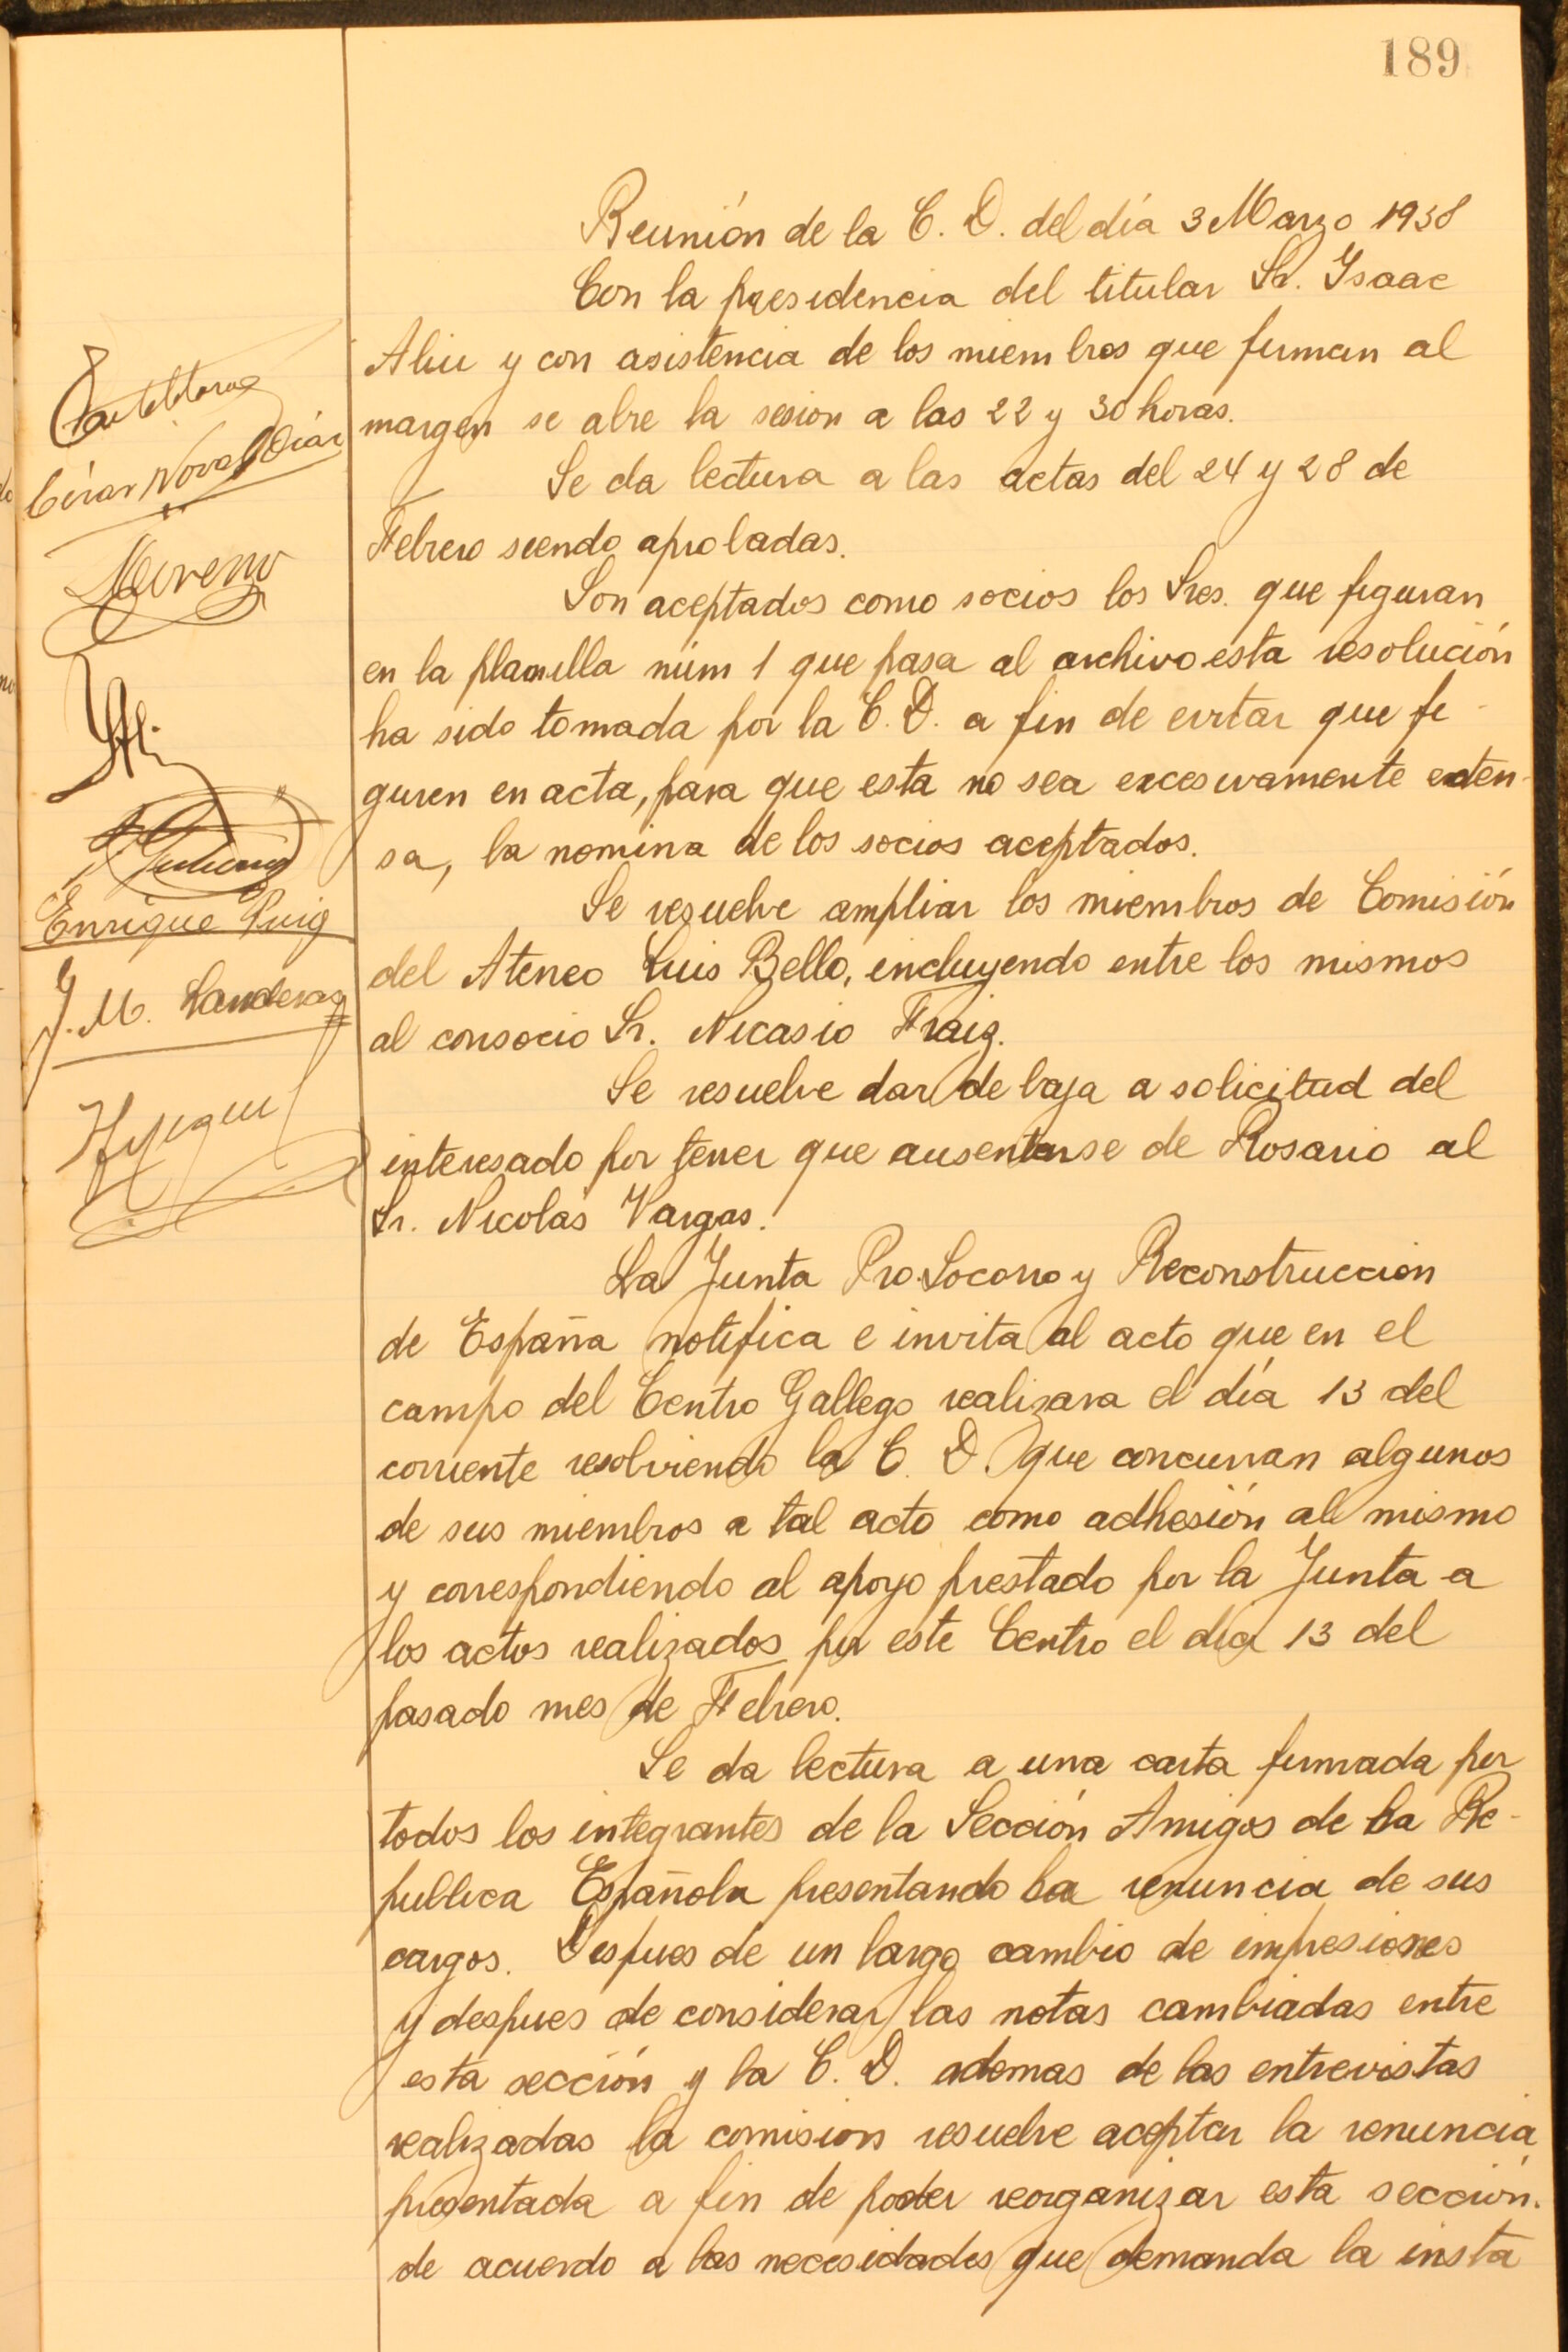 189
Reunión de la C. D. del día 3 Marzo 1938
Con la presidencia del titular Sr. Ysaac
y con asistencia de los miembros que firman al
margen se abre la sesion a las 22 y 30 horas.
Se da lectura a las actas del 24 y 28 de
Febrero siendo aprobadas.
Son aceptados como socios los Sres. que figuran
en la planilla núm 1 que pasa al archivo esta resolución
ha sido tomada por la C. D. a fin de evitar que fi-
guren en acta, para que esta no sea excesivamente exten-
sa, la nomina de los socios aceptados.
Se resuelve ampliar los miembros de Comisión
del Ateneo Luis Bello, incluyendo entre los mismos
al consocio Sr. Nicasio Fraiz.
Se resuelve dar de baja a solicitud del
interesado por tener que ausentarse de Rosario al
Sr. Nicolás Vargas.
La Junta Pro. Socorro y Reconstruccion
de España notifica e invita al acto que en el
campo del Centro Gallego realizara el día 13 del
corriente resolviendo la C. D. que concurran algunos
de sus miembros a tal acto como adhesión al mismo
y correspondiendo al apoyo prestado por la Junta a
los actos realizados por este Centro el día 13 del
pasado mes de Febrero.
Se da lectura a una carta firmada por
todos los integrantes de la Sección Amigos de la Re-
publica Española presentando la renuncia de sus
cargos. Despues de un largo cambio de impresiones
y despues de considerar las notas cambiadas entre
esta sección y la C. D. ademas de las entrevistas
realizadas la comision resuelve aceptar la renuncia
presentada a fin de poder reorganizar esta sección.
de acuerdo a las necesidades que demanda la insta
César Noval Díaz
Moreno
Enrique Puig
J. M. Landeras